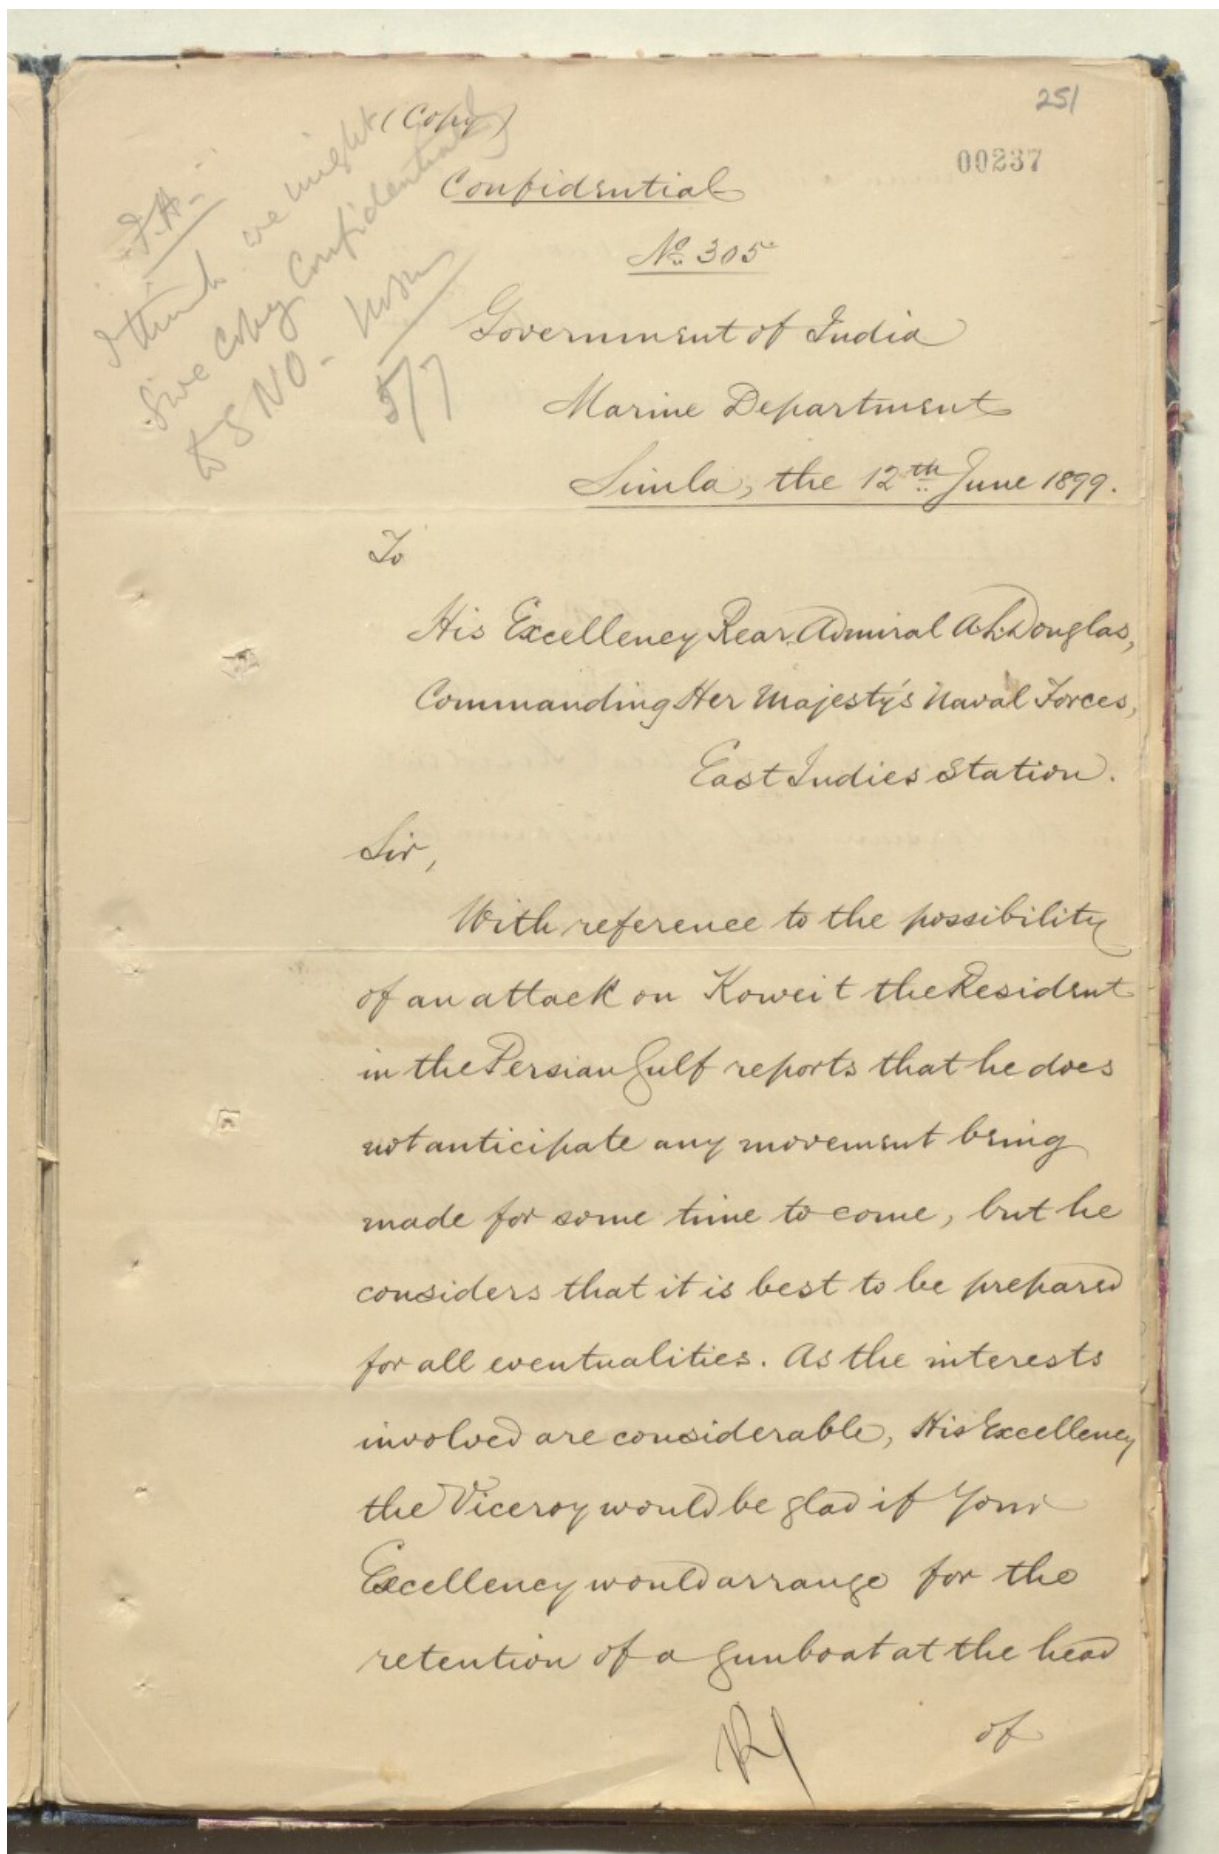 251
(Copy)
00237
Confidential
No. 305
Government of India
Marine Department
Simla, the 12th June 1899.
I think we might
give copy Confidentially
to SNO -
5/7
To
His Excellency Rear Admiral A.L. Douglas,
Commanding Her Majesty's Naval Forces,
East Indies Station.
Sir,
With reference to the possibility
of an attack on Koweit the Resident
in the Persian Gulf reports that he does
not anticipate any movement being
made for some time to come, but he
considers that it is best to be prepared
for all eventualities. As the interests
involved are considerable, His Excellency
the Viceroy would be glad if Your
Excellency would arrange for the
retention of a gunboat at the head
of